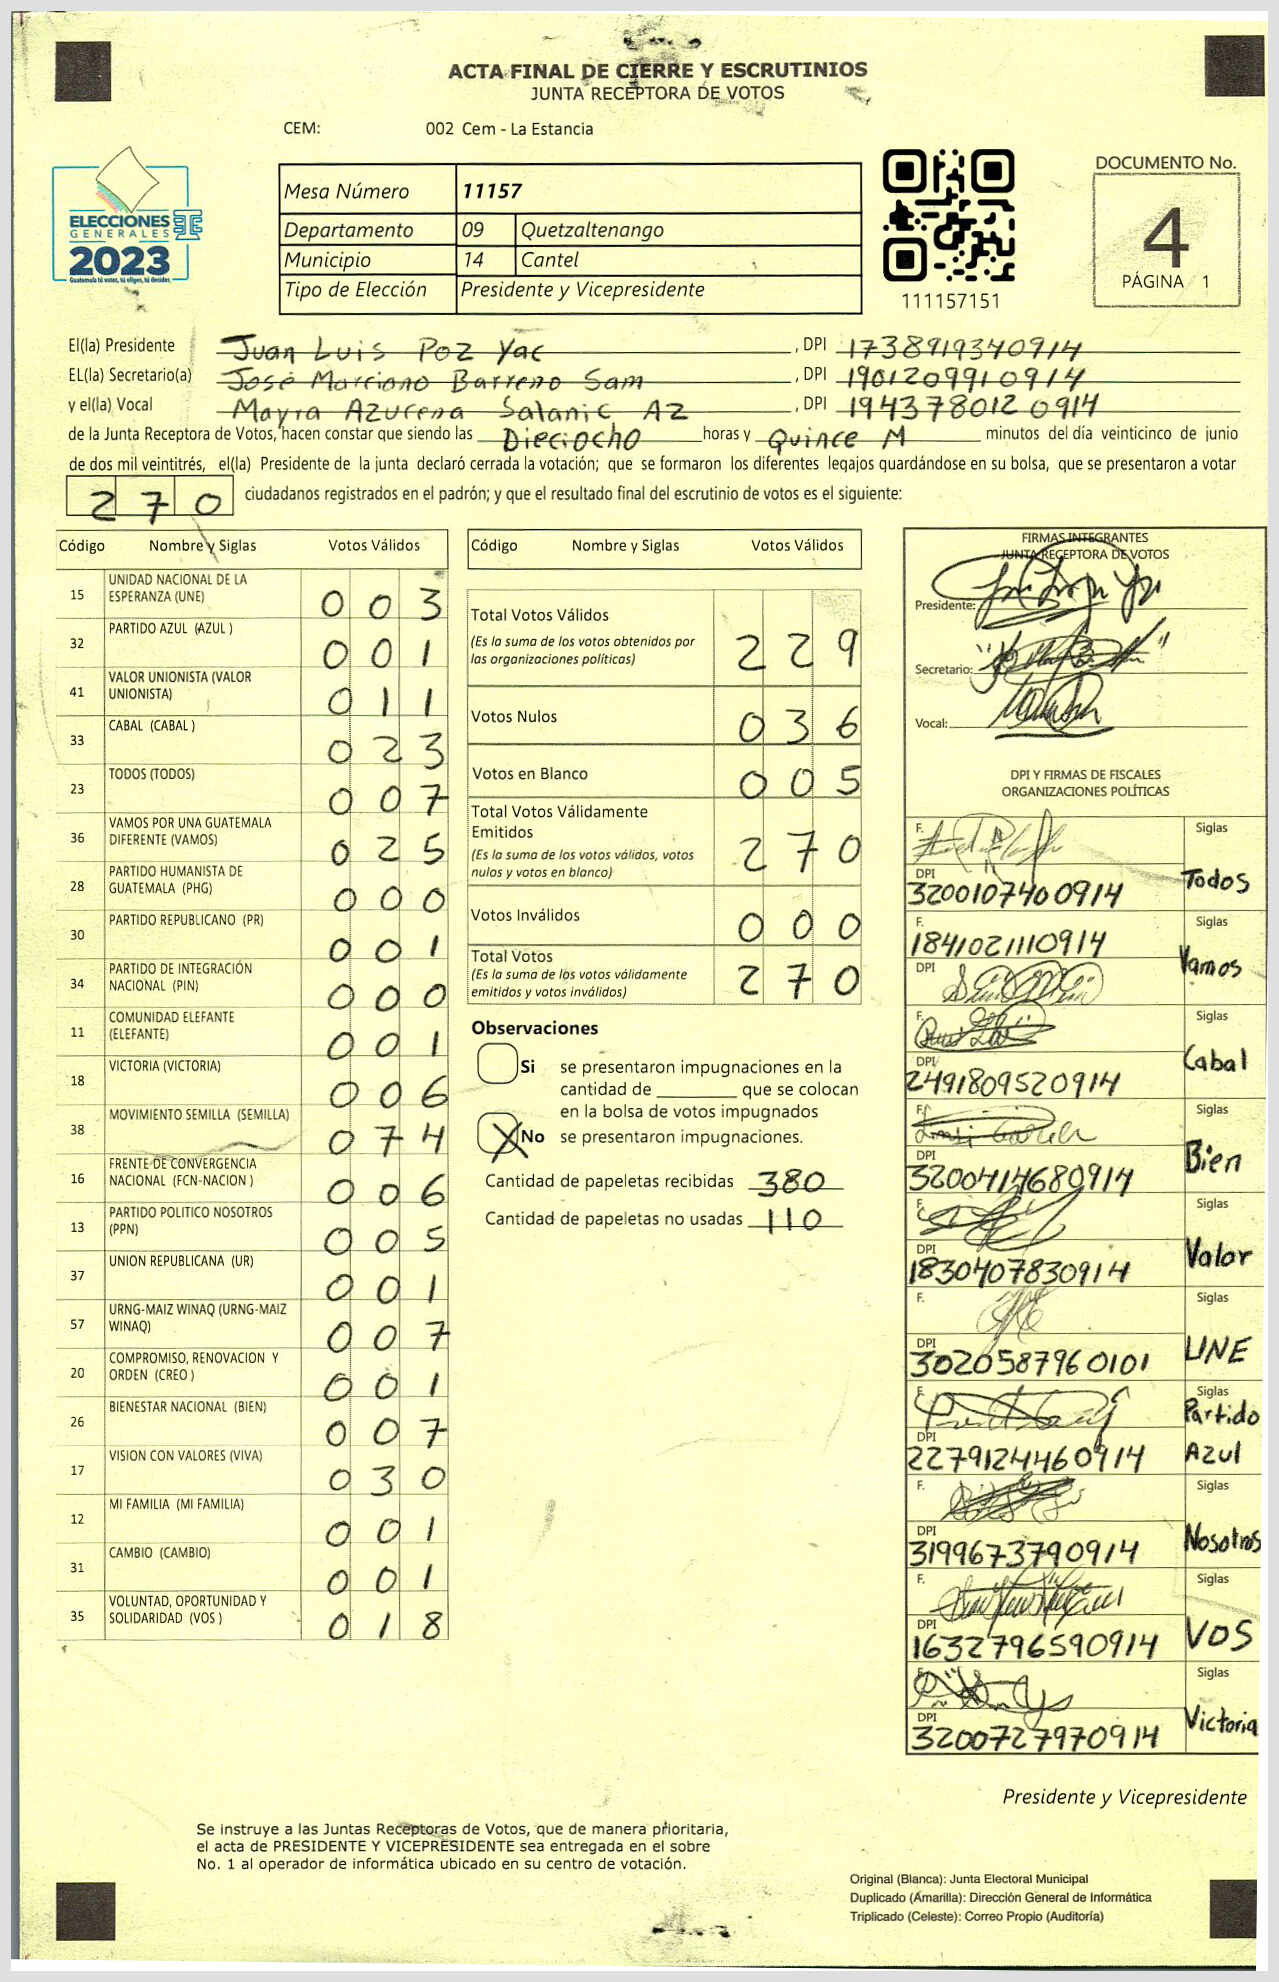 ACTA FINAL DE CIERRE Y ESCRUTINIOS
JUNTA RECEPTORA DE VOTOS
CEM: 002 Cem - La Estancia
ELECCIONES
GENERALES
2023
Guatemala tú votas, tú eliges, tú decides
Mesa Número 11157
Departamento 09 Quetzaltenango
Municipio 14 Cantel
Tipo de Elección Presidente y Vicepresidente
111157151
DOCUMENTO No.
4
PÁGINA 1
El(la) Presidente Juan Luis Poz Yac , DPI 1738919340914
EL(la) Secretario(a) José Marciano Barreno Sam , DPI 1901209910914
y el(la) Vocal Mayra Azucena Salanic Az , DPI 1943780120914
de la Junta Receptora de Votos, hacen constar que siendo las Dieciocho horas y Quince M minutos del día veinticinco de junio
de dos mil veintitrés, el(la) Presidente de la junta declaró cerrada la votación; que se formaron los diferentes legajos guardándose en su bolsa, que se presentaron a votar
270 ciudadanos registrados en el padrón; y que el resultado final del escrutinio de votos es el siguiente:
Código Nombre y Siglas Votos Válidos
15 UNIDAD NACIONAL DE LA ESPERANZA (UNE) 003
32 PARTIDO AZUL (AZUL ) 001
41 VALOR UNIONISTA (VALOR UNIONISTA) 011
33 CABAL (CABAL ) 023
23 TODOS (TODOS) 007
36 VAMOS POR UNA GUATEMALA DIFERENTE (VAMOS) 025
28 PARTIDO HUMANISTA DE GUATEMALA (PHG) 000
30 PARTIDO REPUBLICANO (PR) 001
34 PARTIDO DE INTEGRACIÓN NACIONAL (PIN) 000
11 COMUNIDAD ELEFANTE (ELEFANTE) 001
18 VICTORIA (VICTORIA) 006
38 MOVIMIENTO SEMILLA (SEMILLA) 074
16 FRENTE DE CONVERGENCIA NACIONAL (FCN-NACION ) 006
13 PARTIDO POLITICO NOSOTROS (PPN) 005
37 UNION REPUBLICANA (UR) 001
57 URNG-MAIZ WINAQ (URNG-MAIZ WINAQ) 007
20 COMPROMISO, RENOVACION Y ORDEN (CREO ) 001
26 BIENESTAR NACIONAL (BIEN) 007
17 VISION CON VALORES (VIVA) 030
12 MI FAMILIA (MI FAMILIA) 001
31 CAMBIO (CAMBIO) 001
35 VOLUNTAD, OPORTUNIDAD Y SOLIDARIDAD (VOS ) 018
Código Nombre y Siglas Votos Válidos
Total Votos Válidos 229
(Es la suma de los votos obtenidos por
las organizaciones políticas)
Votos Nulos 036
Votos en Blanco 005
Total Votos Válidamente
Emitidos 270
(Es la suma de los votos válidos, votos
nulos y votos en blanco)
Votos Inválidos 000
Total Votos 270
(Es la suma de los votos válidamente
emitidos y votos inválidos)
Observaciones
Si se presentaron impugnaciones en la
cantidad de ________ que se colocan
en la bolsa de votos impugnados
X No se presentaron impugnaciones.
Cantidad de papeletas recibidas 380
Cantidad de papeletas no usadas 110
FIRMAS INTEGRANTES
JUNTA RECEPTORA DE VOTOS
Presidente:
Secretario:
Vocal:
DPI Y FIRMAS DE FISCALES
ORGANIZACIONES POLÍTICAS
F. Siglas
DPI Todos
3200107400914
F. Siglas
1841021110914 Vamos
DPI
F. Siglas
DPI Cabal
2491809520914
F. Siglas
DPI Bien
3200414680914
F. Siglas
DPI Valor
1830407830914
F. Siglas
DPI UNE
3020587960101
F. Siglas
Partido
DPI
2279124460914 Azul
F. Siglas
DPI Nosotros
3199673790914
F. Siglas
DPI VOS
1632796590914
F. Siglas
DPI Victoria
3200727970914
Presidente y Vicepresidente
Se instruye a las Juntas Receptoras de Votos, que de manera prioritaria,
el acta de PRESIDENTE Y VICEPRESIDENTE sea entregada en el sobre
No. 1 al operador de informática ubicado en su centro de votación.
Original (Blanca): Junta Electoral Municipal
Duplicado (Amarilla): Dirección General de Informática
Triplicado (Celeste): Correo Propio (Auditoría)